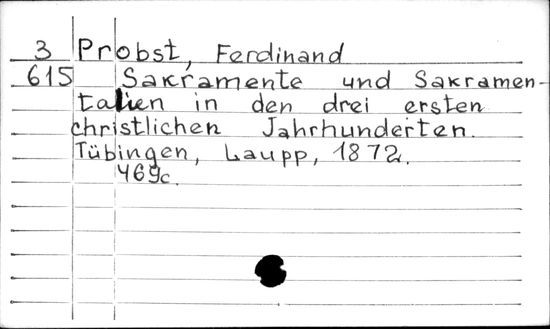 3 Probst, Ferdinand
615 Sakramente und Sakramen-
talien in den drei ersten
christlichen Jahrhunderten.
Tübingen, Laupp, 1872.
469c.